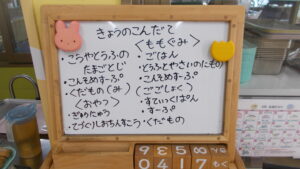 きょうのこんだて
・こうやとうふの
たまごとじ
・こんそめすーぷ
・くだもの(み)
〈おやつ〉
・ぎゅうにゅう
・てづくりしおちんすこう
〈ももぐみ〉
・ごはん
・とうふとやさいのにもの
・こんそめすーぷ
(ごごしょく)
・すてぃっくぱん
・すーぷ
・くだもの
9 3 5 8
0 4 1 7 もく